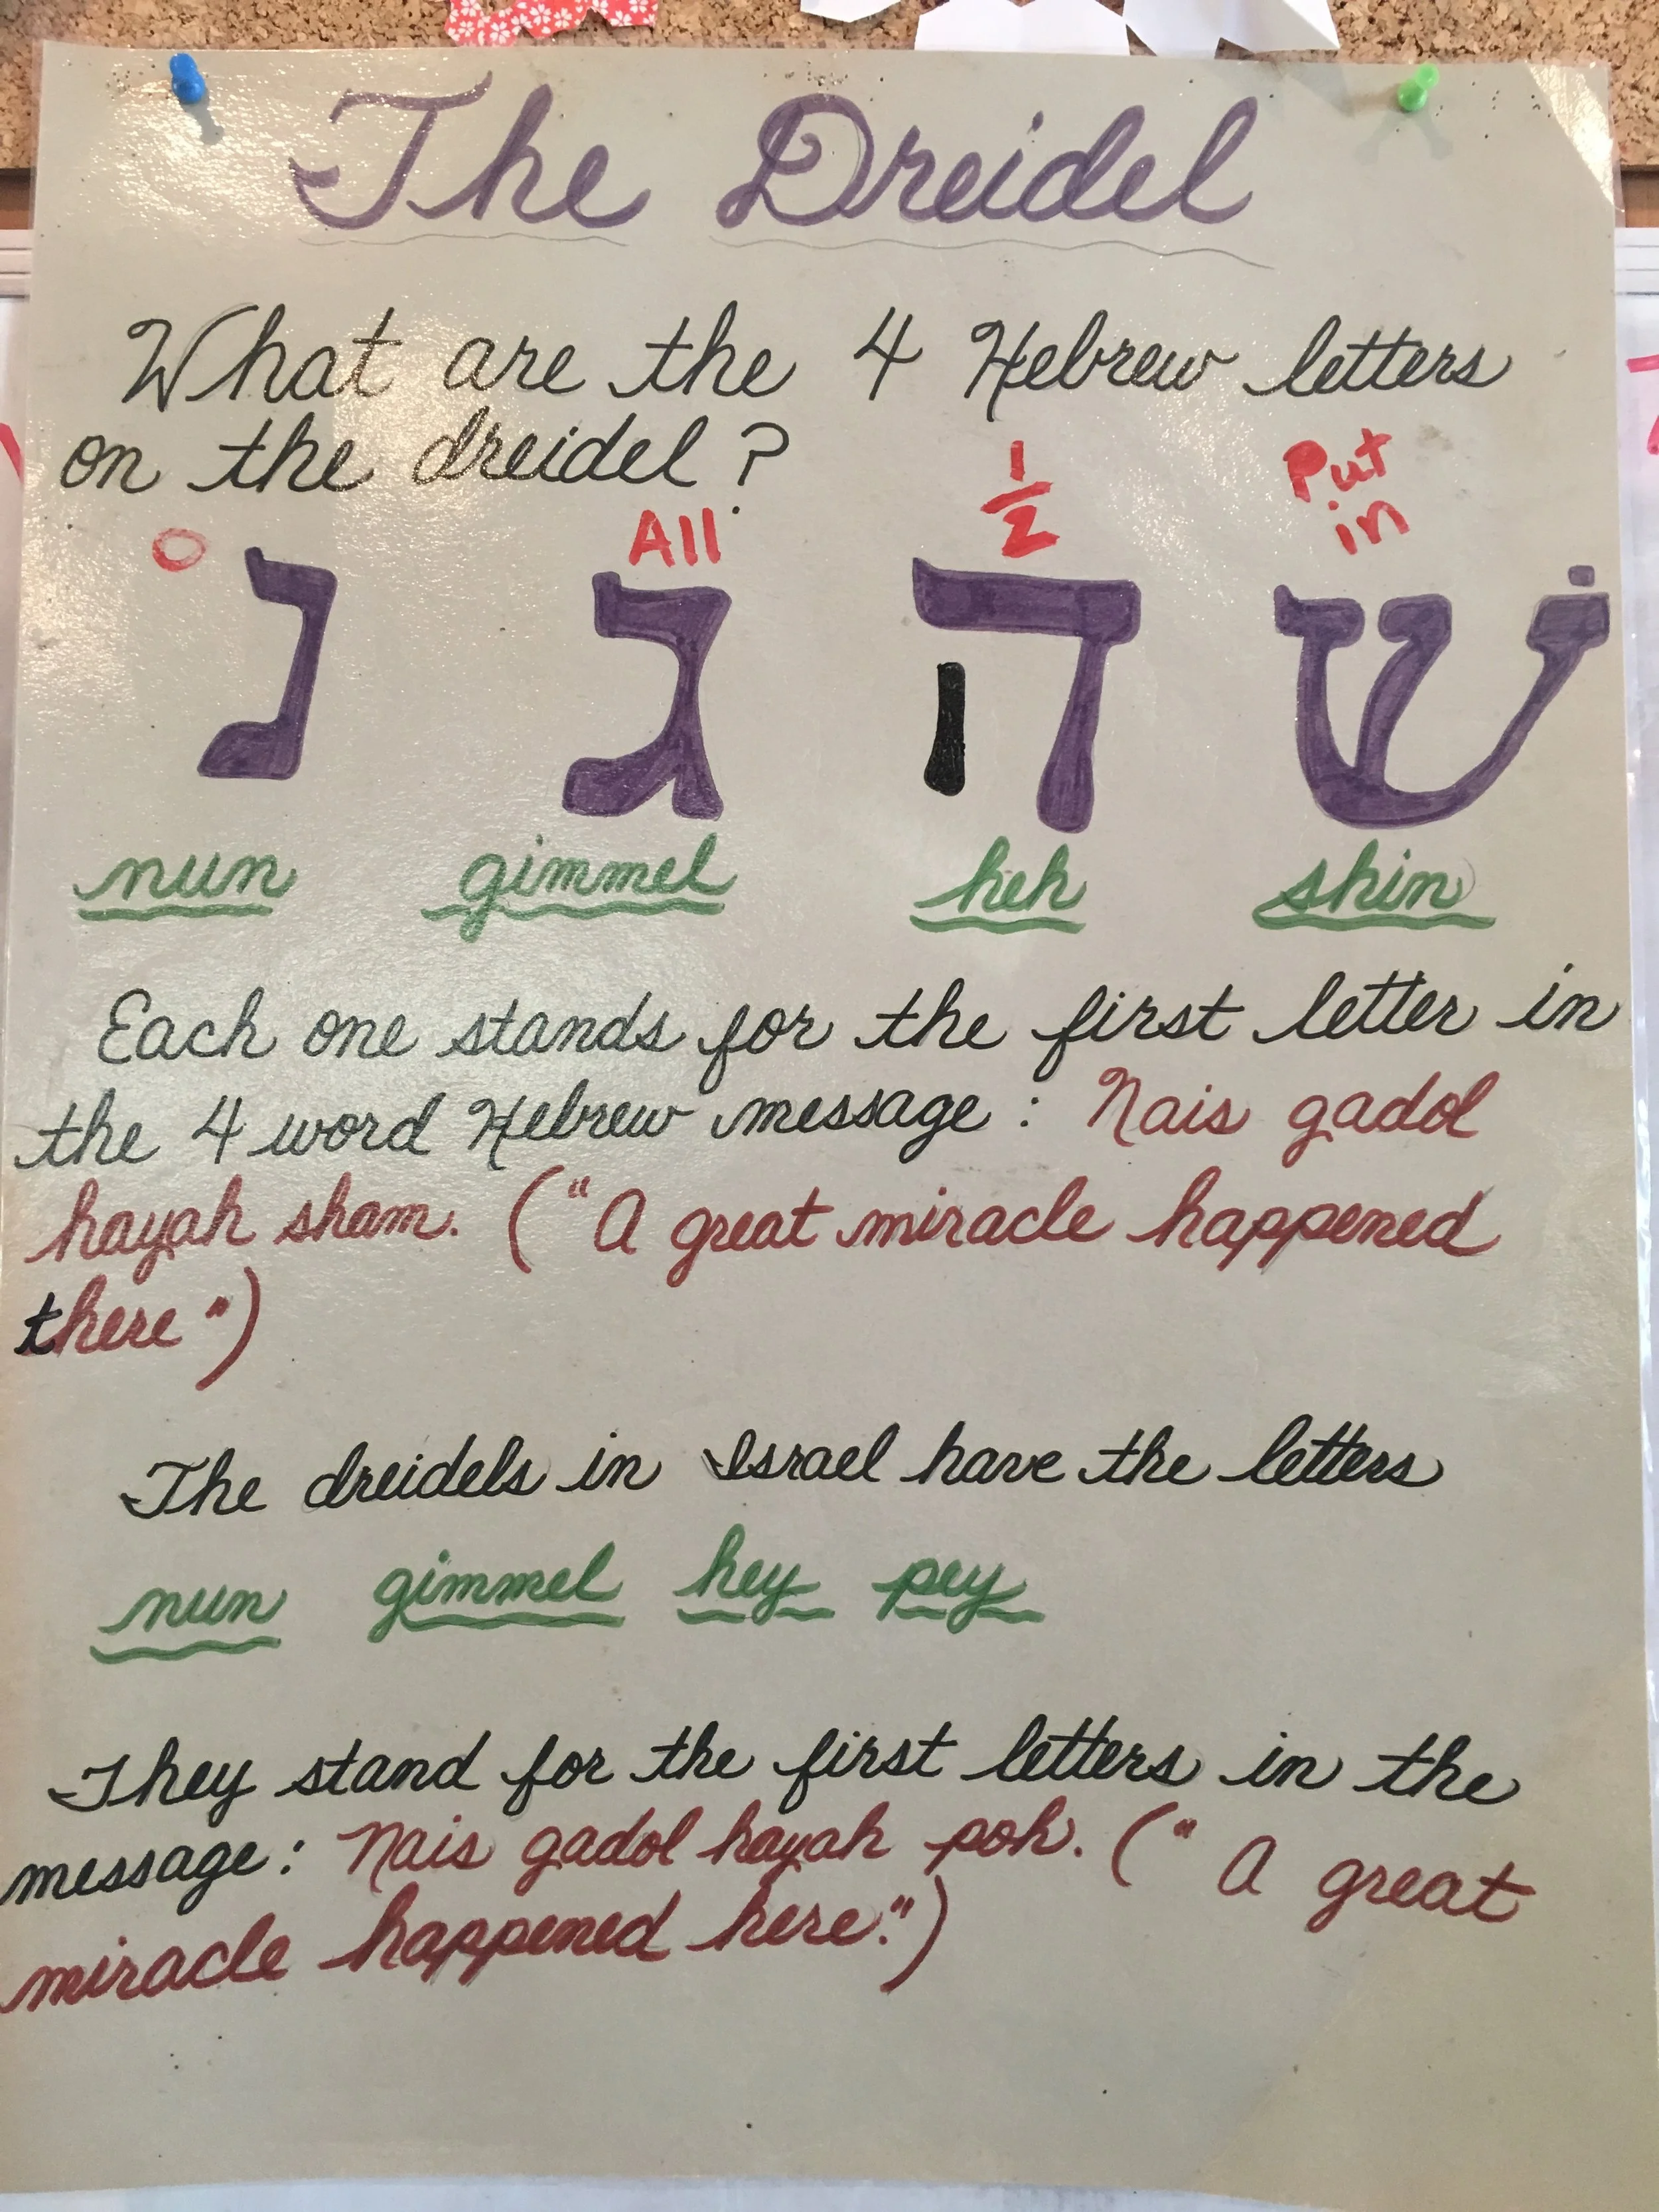 The Dreidel
What are the 4 Hebrew letters
on the dreidel?
0 All 1/2 Put in
נ ג ה שׁ
nun gimmel heh shin
Each one stands for the first letter in
the 4 word Hebrew message: Nais gadol
hayah sham. ("A great miracle happened
there")
The dreidels in Israel have the letters
nun gimmel hey pey
They stand for the first letters in the
message: Nais gadol hayah poh. ("A great
miracle happened here.")